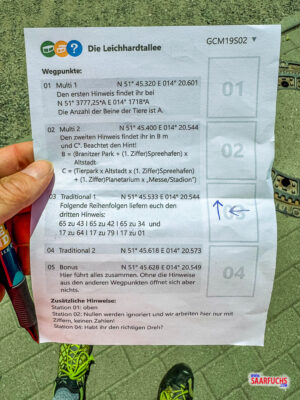 Die Leichhardtallee
GCM19S02 ▼
Wegpunkte:
01 Multi 1 N 51° 45.320 E 014° 20.601
Den ersten Hinweis findet ihr bei
N 51° 3777,25*A E 014° 1718*A
Die Anzahl der Beine der Tiere ist A.
01
02 Multi 2 N 51° 45.400 E 014° 20.544
Den zweiten Hinweis findet ihr in B m
und C°. Beachtet den Hint!
B = (Branitzer Park + (1. Ziffer)Spreehafen) x
Altstadt
C = (Tierpark x Altstadt x (1. Ziffer)Spreehafen)
+ (1. Ziffer)Planetarium x „Messe/Stadion")
02
03 Traditional 1 N 51° 45.533 E 014° 20.544
Folgende Reihenfolgen liefern euch den
dritten Hinweis:
65 zu 43 I 65 zu 42 I 65 zu 34 und
17 zu 64 I 17 zu 79 I 17 zu 01
↑ ←
04 Traditional 2 N 51° 45.618 E 014° 20.573
05 Bonus N 51° 45.628 E 014° 20.549
Hier führt alles zusammen. Ohne die Hinweise
aus den anderen Wegpunkten öffnet sich aber
nichts.
04
Zusätzliche Hinweise:
Station 01: oben
Station 02: Nullen werden ignoriert und wir arbeiten hier nur mit
Ziffern, keinen Zahlen!
Station 04: Habt ihr den richtigen Dreh?
SAARFUCHS